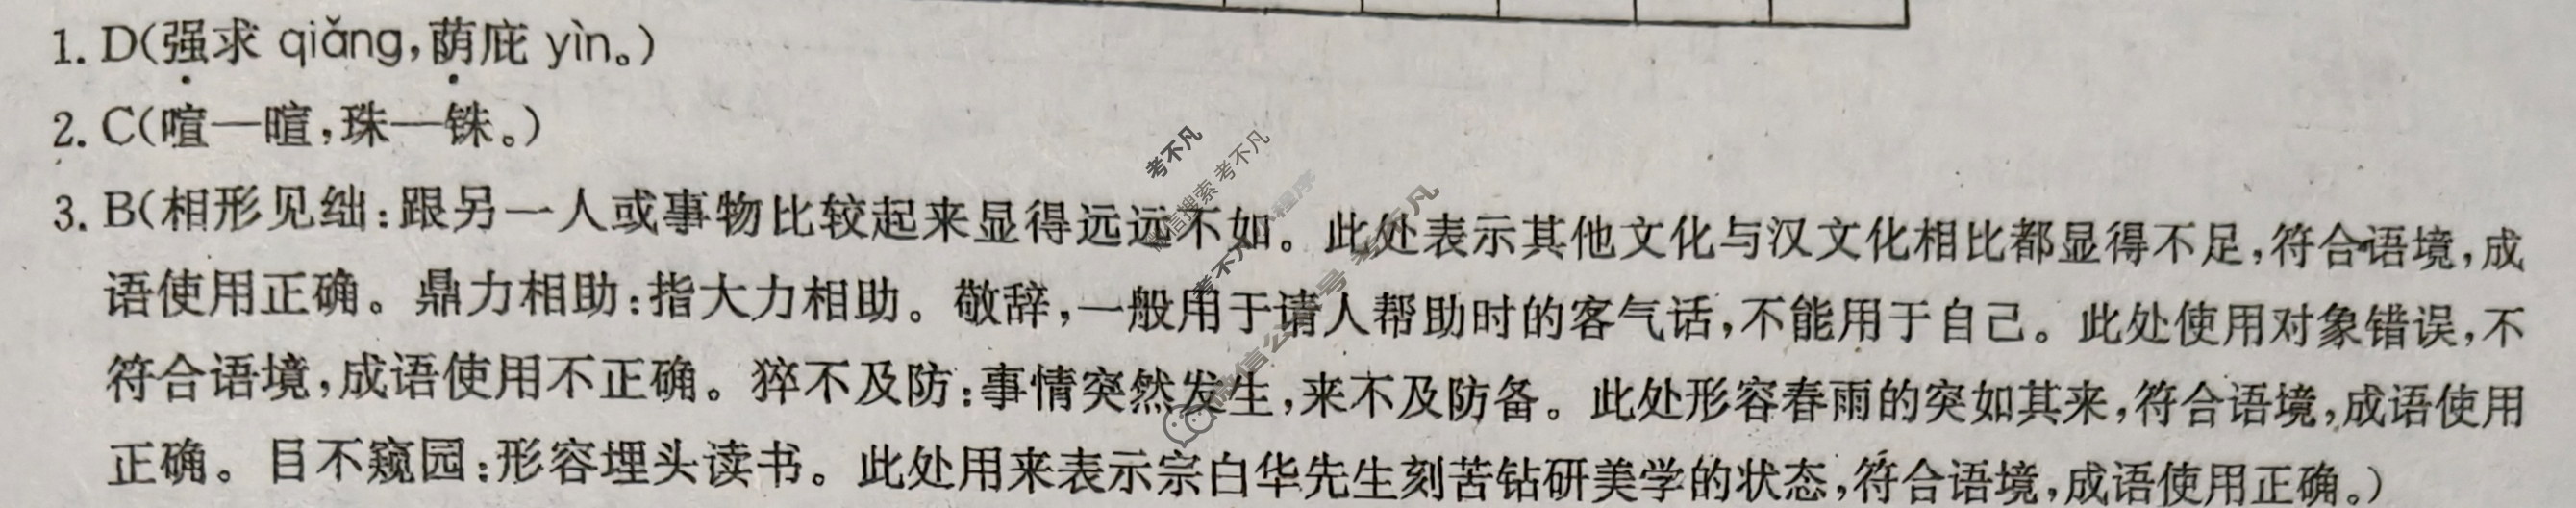 1. D(强求 qiǎng,荫庇 yìn。)
2. C(喧—暄,珠—铢。)
3. B(相形见绌:跟另一人或事物比较起来显得远远不如。此处表示其他文化与汉文化相比都显得不足,符合语境,成
语使用正确。鼎力相助:指大力相助。敬辞,一般用于请人帮助时的客气话,不能用于自己。此处使用对象错误,不
符合语境,成语使用不正确。猝不及防:事情突然发生,来不及防备。此处形容春雨的突如其来,符合语境,成语使用
正确。目不窥园:形容埋头读书。此处用来表示宗白华先生刻苦钻研美学的状态,符合语境,成语使用正确。)
考不凡
微信搜索 考不凡
小程序
考不凡
微信公众号 考不凡